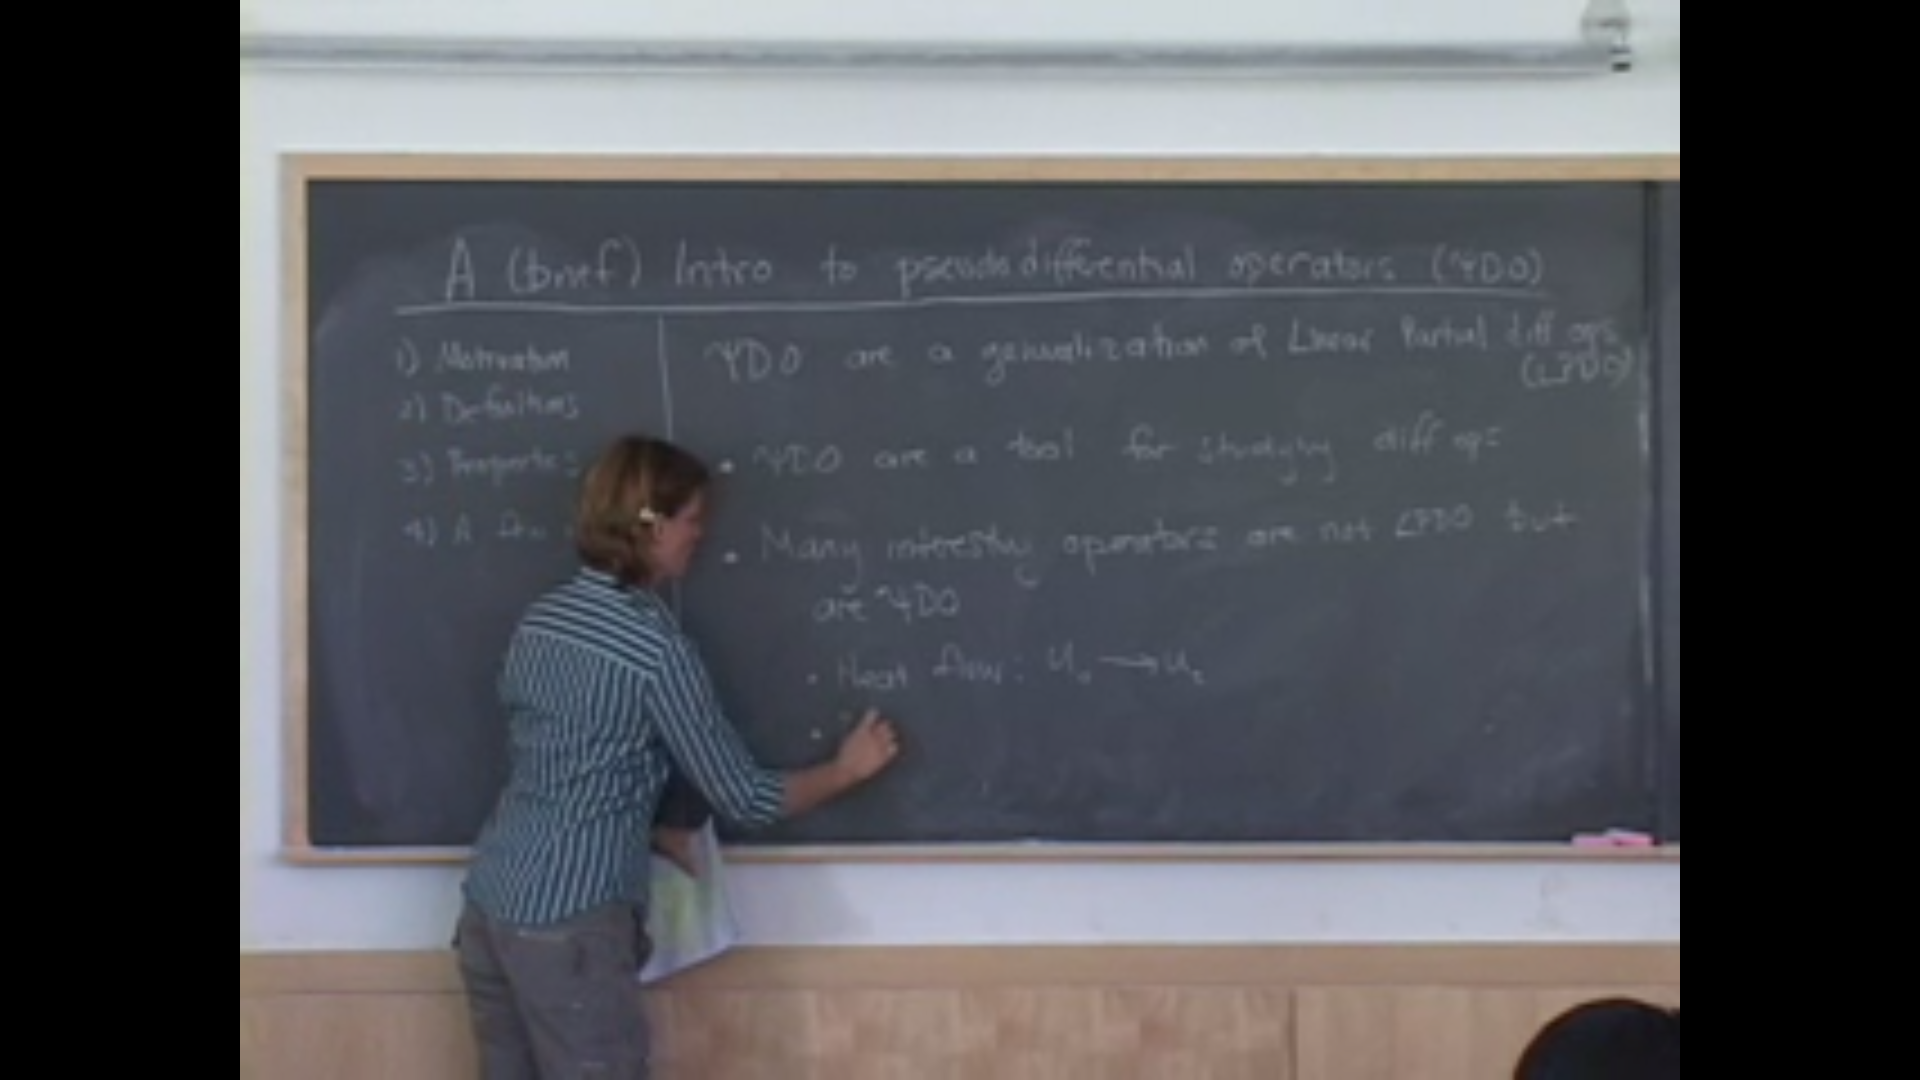 A (brief) Intro to pseudodifferential operators (ΨDO)
1) Motivation
2) Definitions
3) Properties
4) A
ΨDO are a generalization of Linear Partial diff ops
(LPDO)
• ΨDO are a tool for studying diff ops
• Many interesting operators are not LPDO but
are ΨDO
• Heat flow: U₀ → U